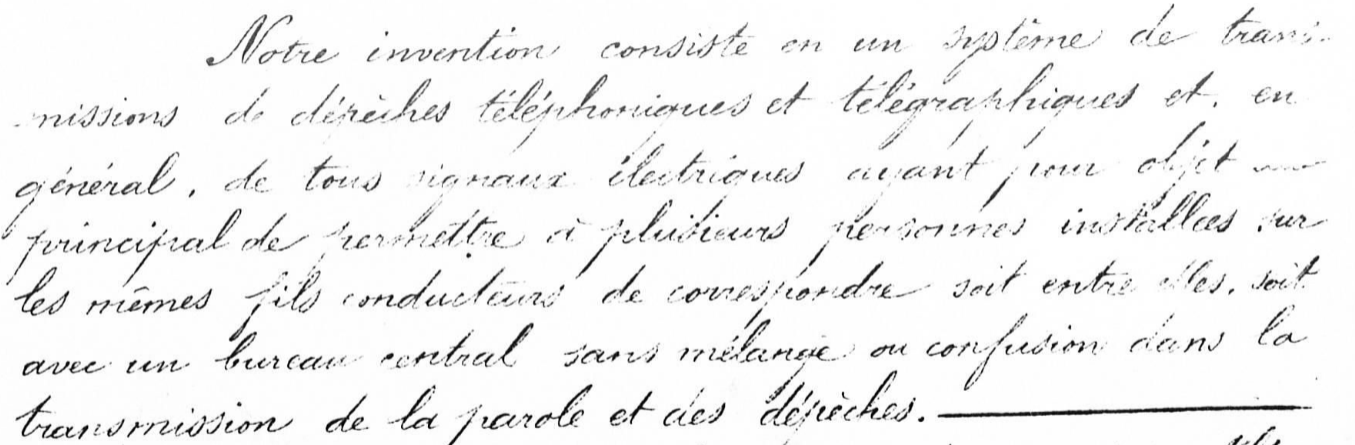 Notre invention consiste en un système de trans-
missions de dépêches téléphoniques et télégraphiques et, en
général, de tous signaux électriques ayant pour objet
principal de permettre à plusieurs personnes installées sur
les mêmes fils conducteurs de correspondre soit entre elles, soit
avec un bureau central sans mélange ou confusion dans la
transmission de la parole et des dépêches.